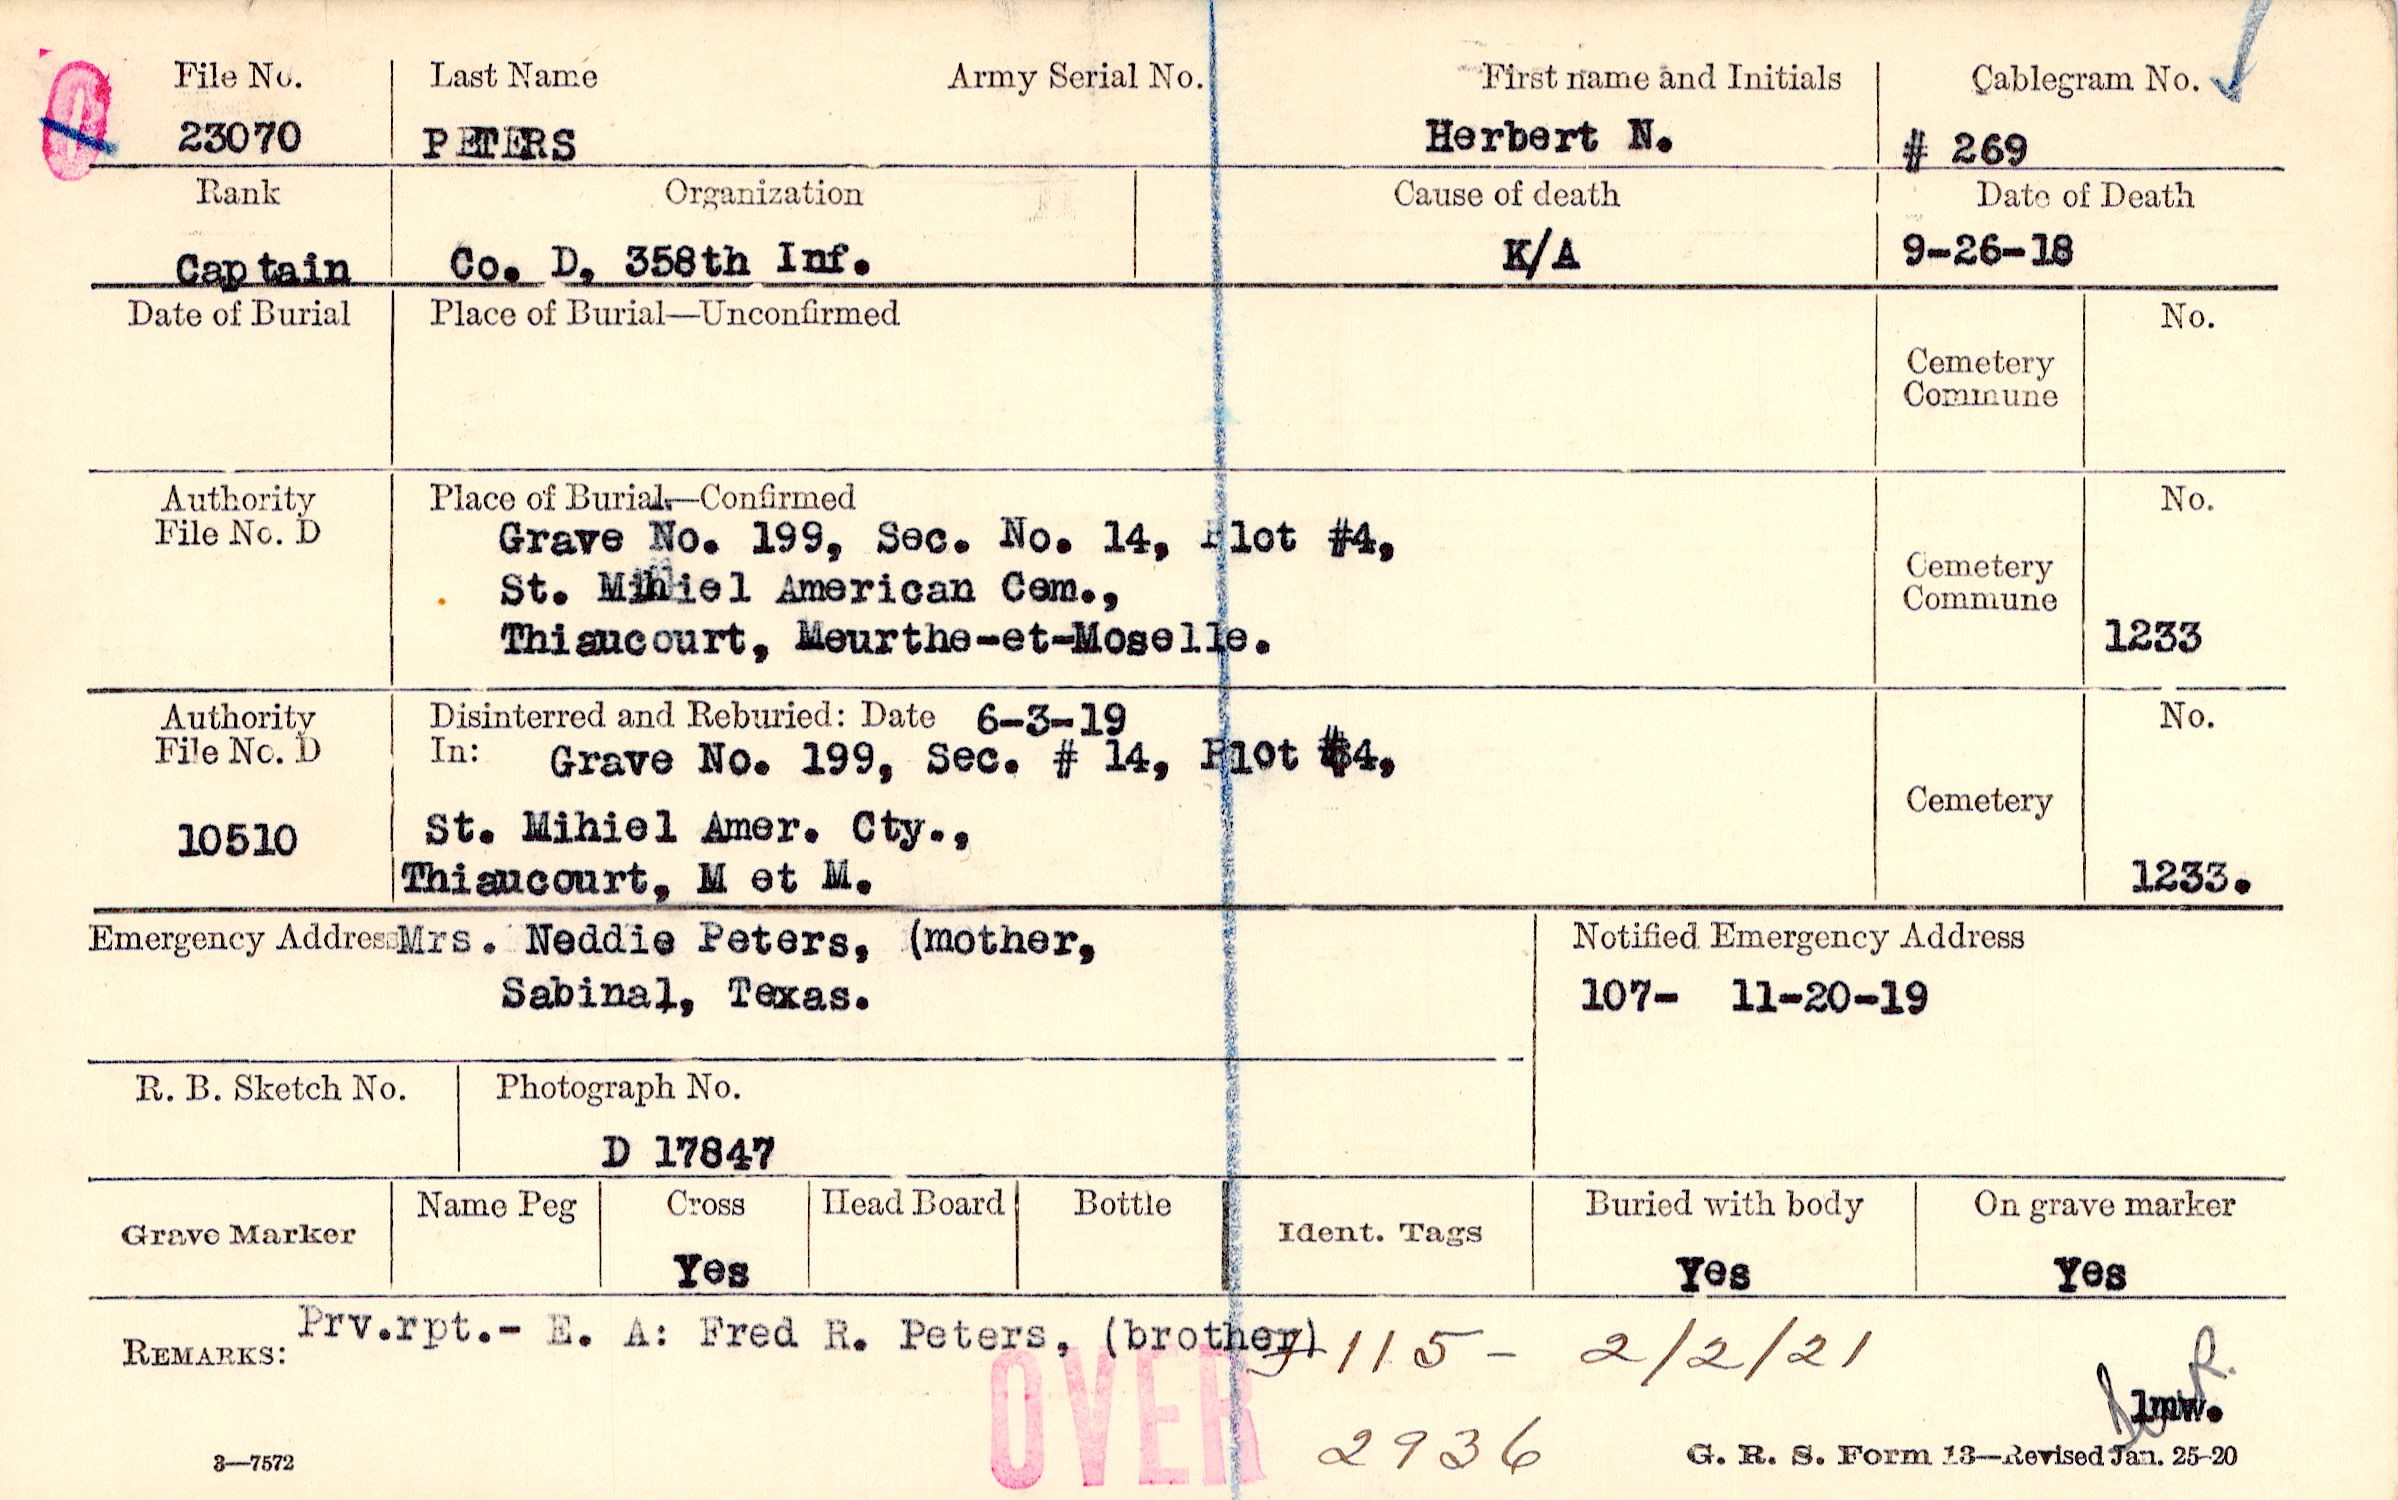 File No. Last Name Army Serial No. First name and Initials Cablegram No.
23070 PETERS Herbert N. # 269
Rank Organization Cause of death Date of Death
Captain Co. D, 358th Inf. K/A 9-26-18
Date of Burial Place of Burial—Unconfirmed No.
Cemetery
Commune
Authority Place of Burial—Confirmed No.
File No. D Grave No. 199, Sec. No. 14, Plot #4,
St. Mihiel American Cem., Cemetery
Commune
Thiaucourt, Meurthe-et-Moselle. 1233
Authority Disinterred and Reburied: Date 6-3-19 No.
File No. D In: Grave No. 199, Sec. # 14, Plot #4,
Cemetery
10510 St. Mihiel Amer. Cty.,
Thiaucourt, M et M. 1233.
Emergency Address Mrs. Neddie Peters, (mother, Notified Emergency Address
Sabinal, Texas. 107- 11-20-19
R. B. Sketch No. Photograph No.
D 17847
Grave Marker Name Peg Cross Head Board Bottle Ident. Tags Buried with body On grave marker
Yes Yes Yes
REMARKS: Prv.rpt.- E. A: Fred R. Peters, (brother) 115 - 2/2/21
OVER
lmw.
2936
3—7572 G. R. S. Form 13—Revised Jan. 25-20